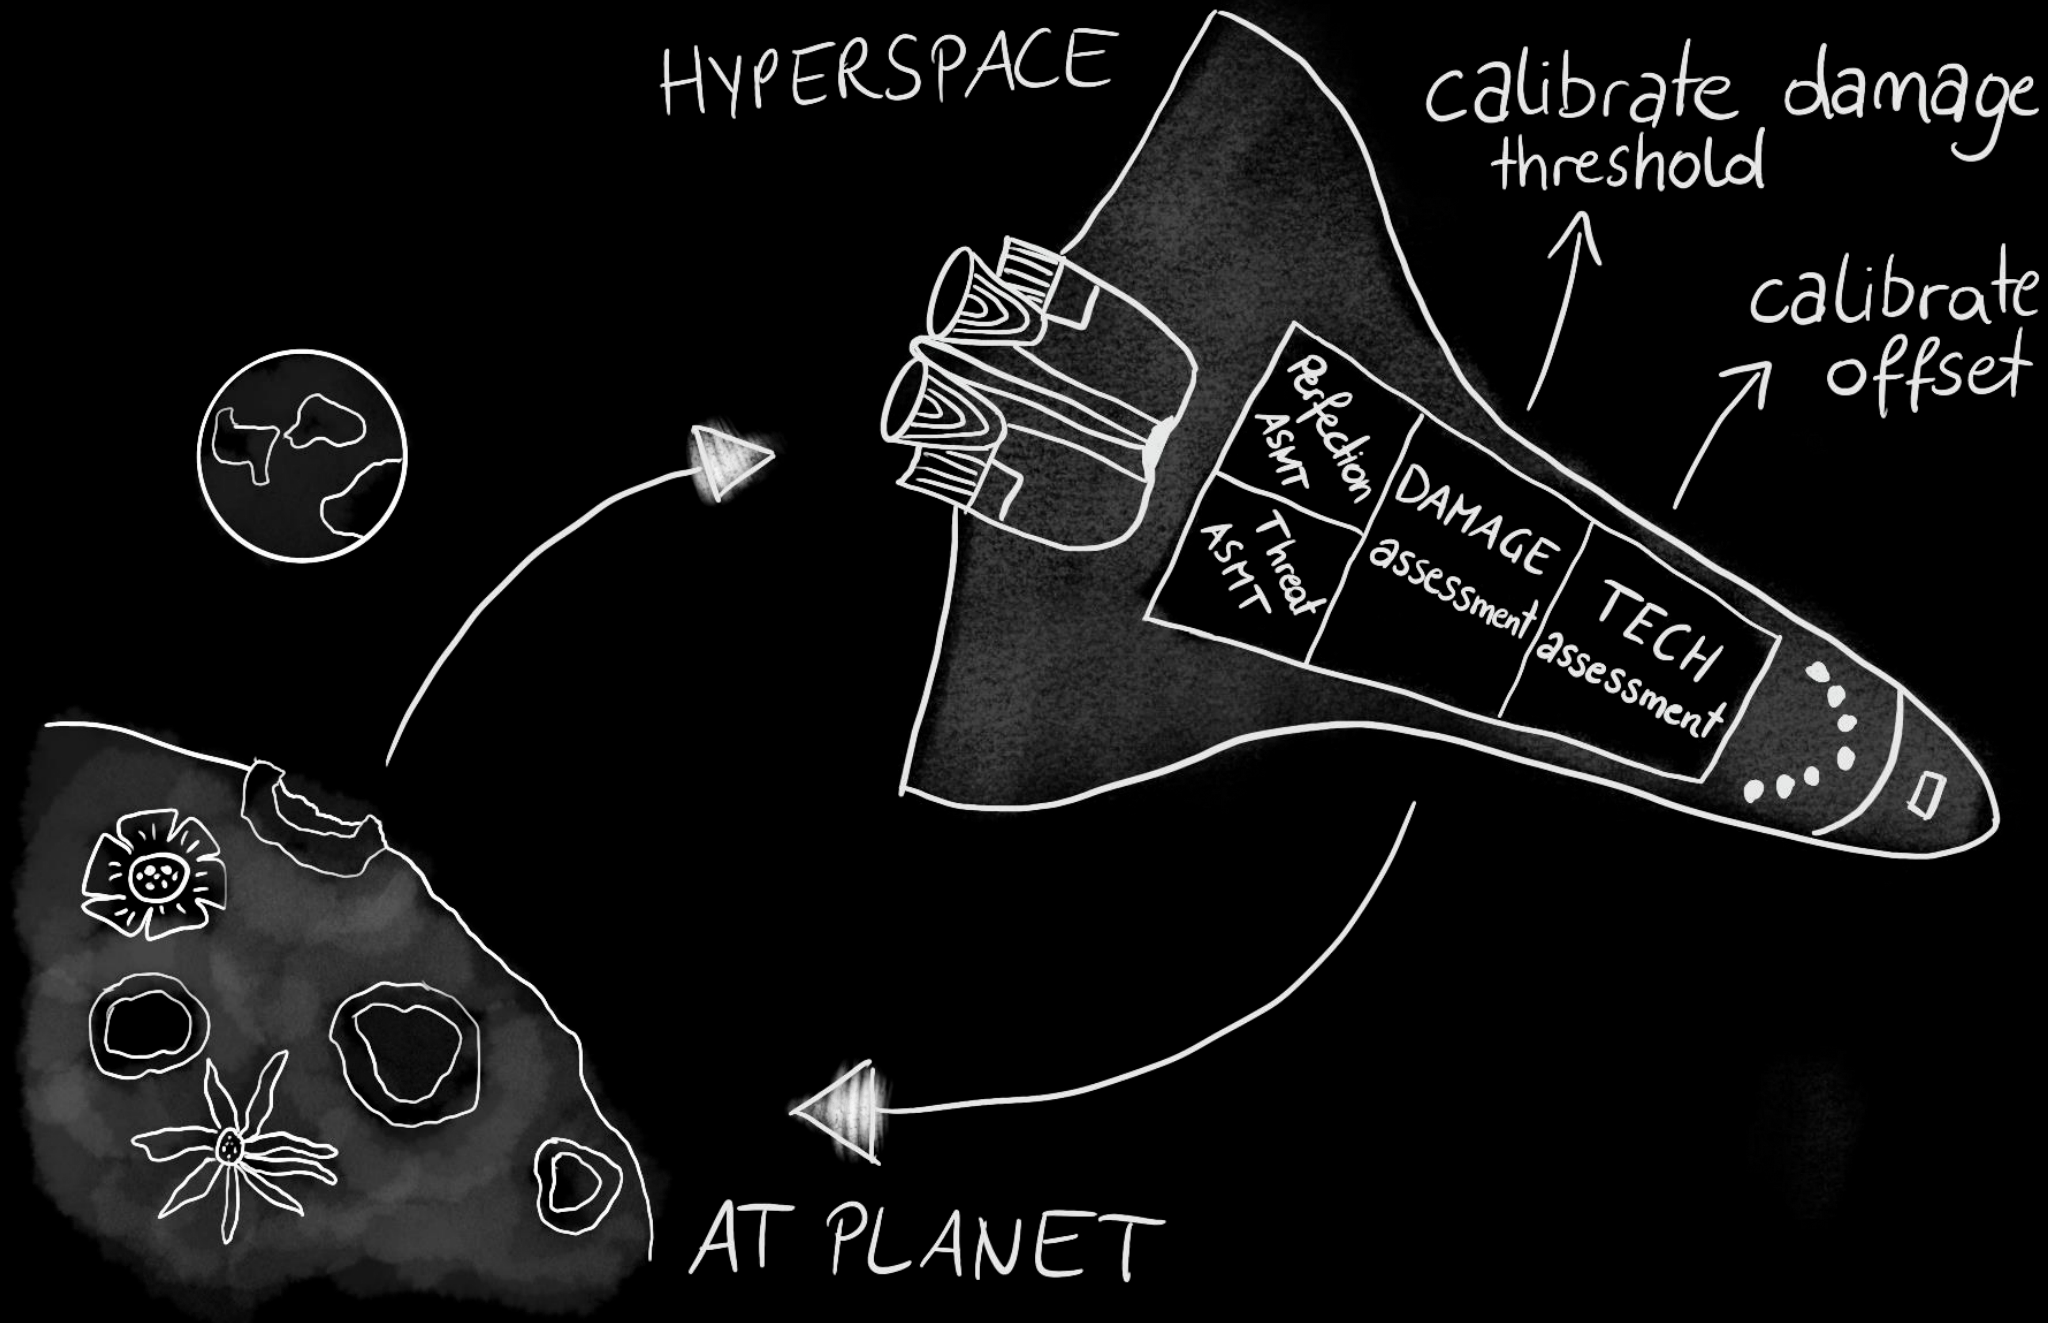 HYPERSPACE
calibrate damage
threshold
calibrate
offset
Perfection
ASMT
Threat
ASMT
DAMAGE
assessment
TECH
assessment
AT PLANET